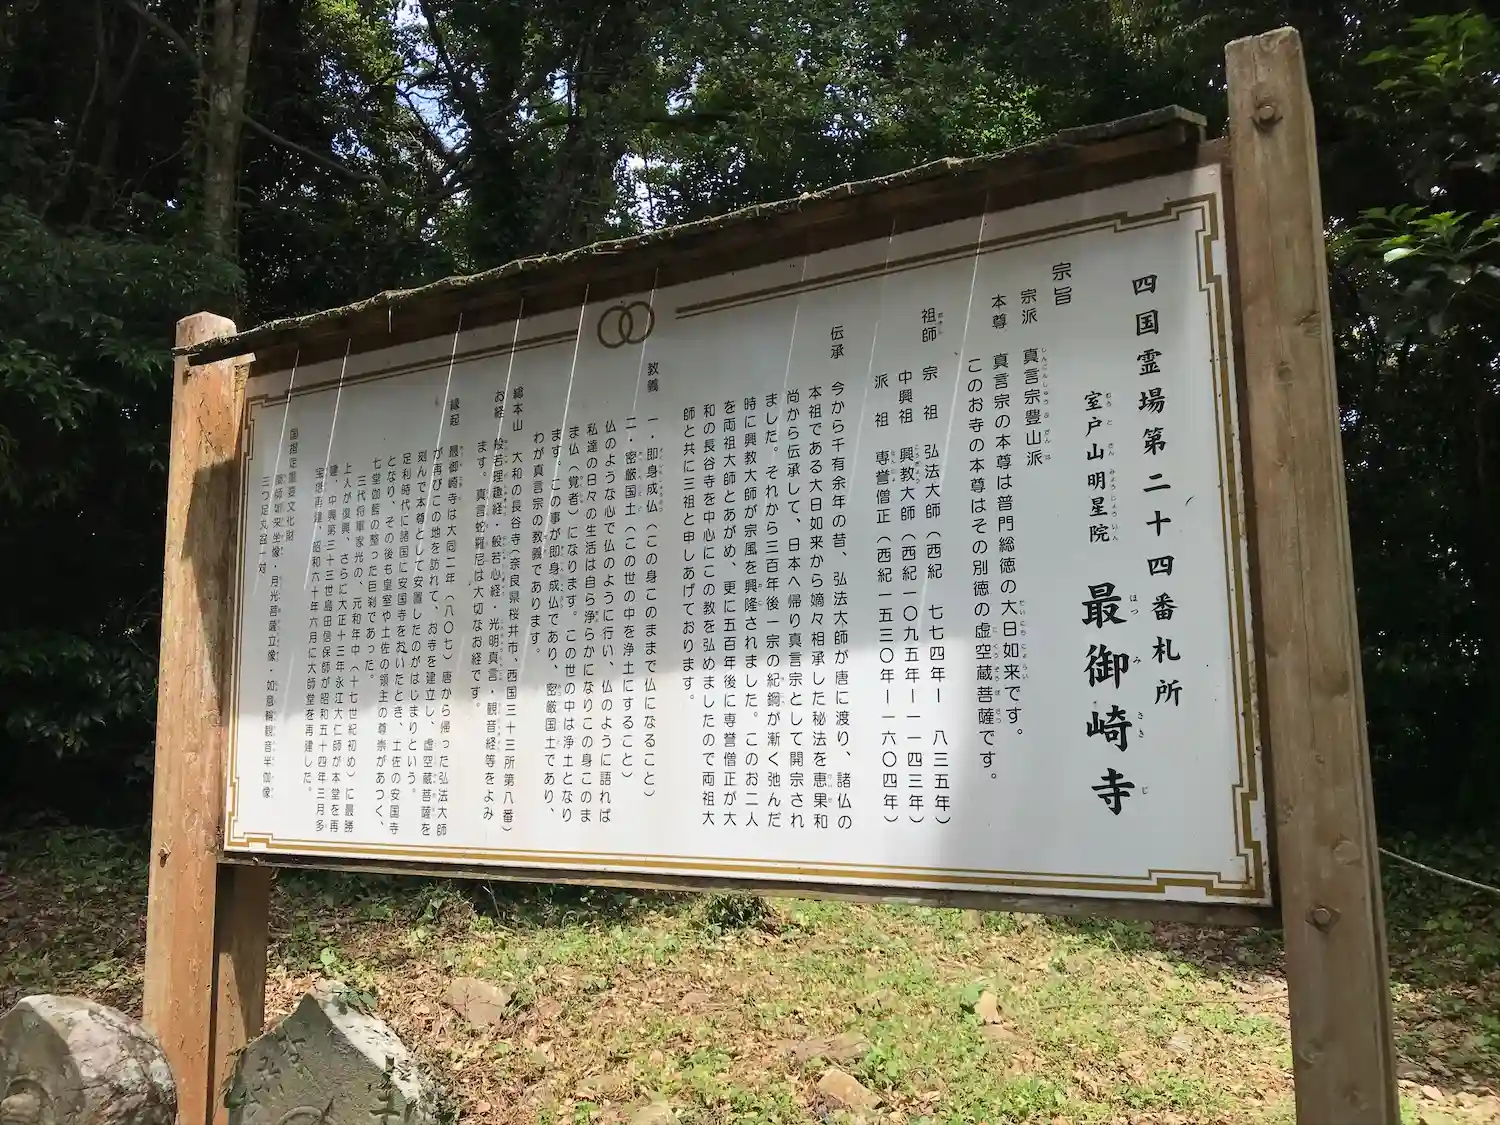 四国霊場第二十四番札所
室戸山明星院 最御崎寺
宗旨
宗派 真言宗豊山派
本尊 真言宗の本尊は普門総徳の大日如来です。
このお寺の本尊はその別徳の虚空蔵菩薩です。
祖師 宗祖 弘法大師(西紀 七七四年ー 八三五年)
中興祖 興教大師(西紀一〇九五年ー一一四三年)
派祖 専誉僧正(西紀一五三〇年ー一六〇四年)
伝承 今から千有余年の昔、弘法大師が唐に渡り、諸仏の
本祖である大日如来から嫡々相承した秘法を恵果和
尚から伝承して、日本へ帰り真言宗として開宗され
ました。それから三百年後一宗の紀綱が漸く弛んだ
時に興教大師が宗風を興隆されました。このお二人
を両祖大師とあがめ、更に五百年後に専誉僧正が大
和の長谷寺を中心にこの教を弘めましたので両祖大
師と共に三祖と申しあげております。
教義 一・即身成仏(この身このままで仏になること)
二・密厳国土(この世の中を浄土にすること)
仏のような心で仏のように行い、仏のように語れば
私達の日々の生活は自ら浄らかになりこの身このま
ま仏(覚者)になります。この世の中は浄土となり
ます。この事が即身成仏であり、密厳国土であり、
わが真言宗の教義であります。
総本山 大和の長谷寺(奈良県桜井市、西国三十三所第八番)
お経 般若理趣経・般若心経・光明真言・観音経等をよみ
ます。真言蛇羅尼は大切なお経です。
縁起 最御崎寺は大同二年(八〇七)唐から帰った弘法大師
が再びこの地を訪れて、お寺を建立し、虚空蔵菩薩を
刻んで本尊として安置したのがはじまりという。
足利時代に諸国に安国寺をおいたとき、土佐の安国寺
となり、その後も皇室や土佐の領主の尊崇があつく、
七堂伽藍の整った巨刹であった。
三代将軍家光の、元和年中(十七世紀初め)に最勝
上人が復興、さらに大正十三年永江大仁師が本堂を再
建、中興第三十三世島田信保師が昭和五十四年三月多
宝塔再建、昭和六十年六月に大師堂を再建した。
国指定重要文化財
薬師如来坐像・月光菩薩立像・如意輪観音半伽像
三つ足丸盆一対